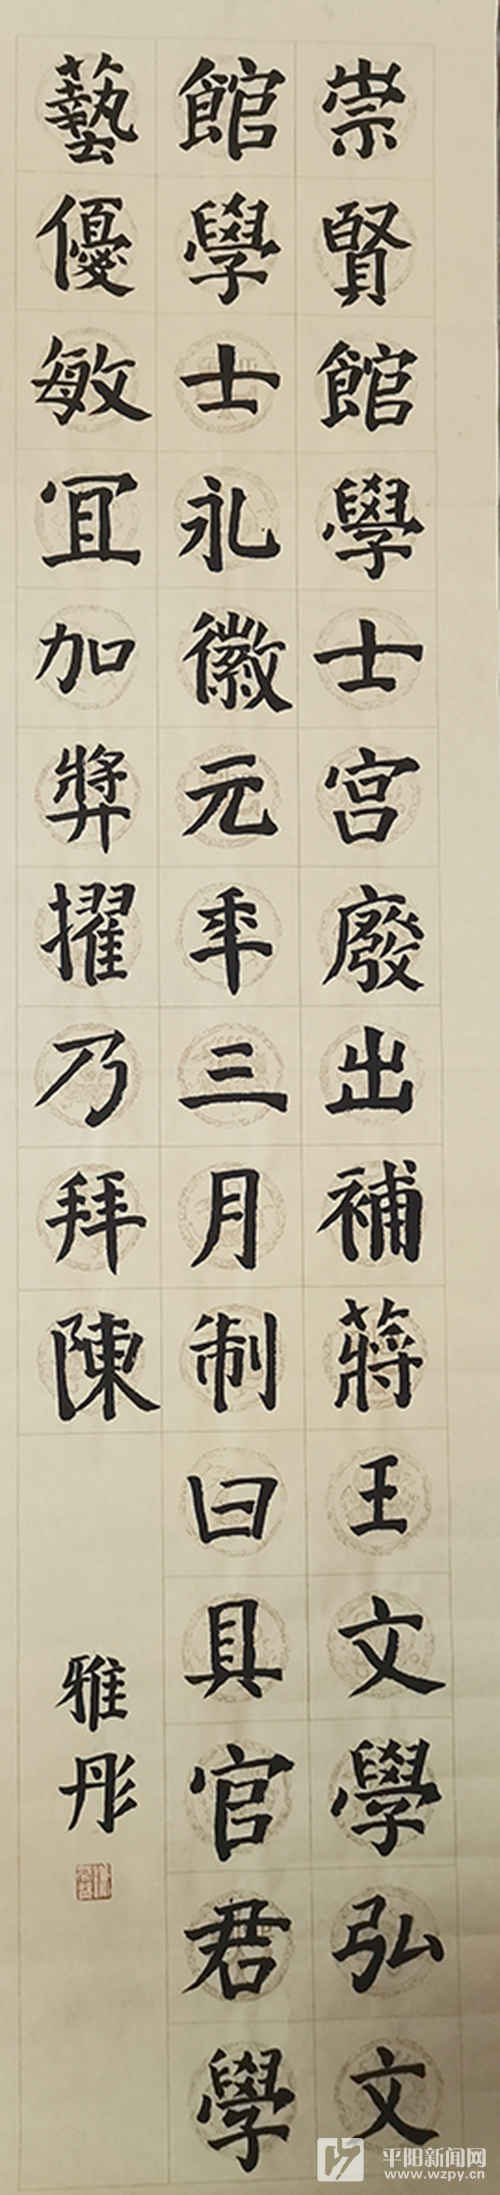 崇賢館學士宫廢出補蔣王文學弘文
館學士永徽元年三月制曰具官君學
藝優敏宜加獎擢乃拜陳
雅彤
平阳新闻网
www.wzpy.cn